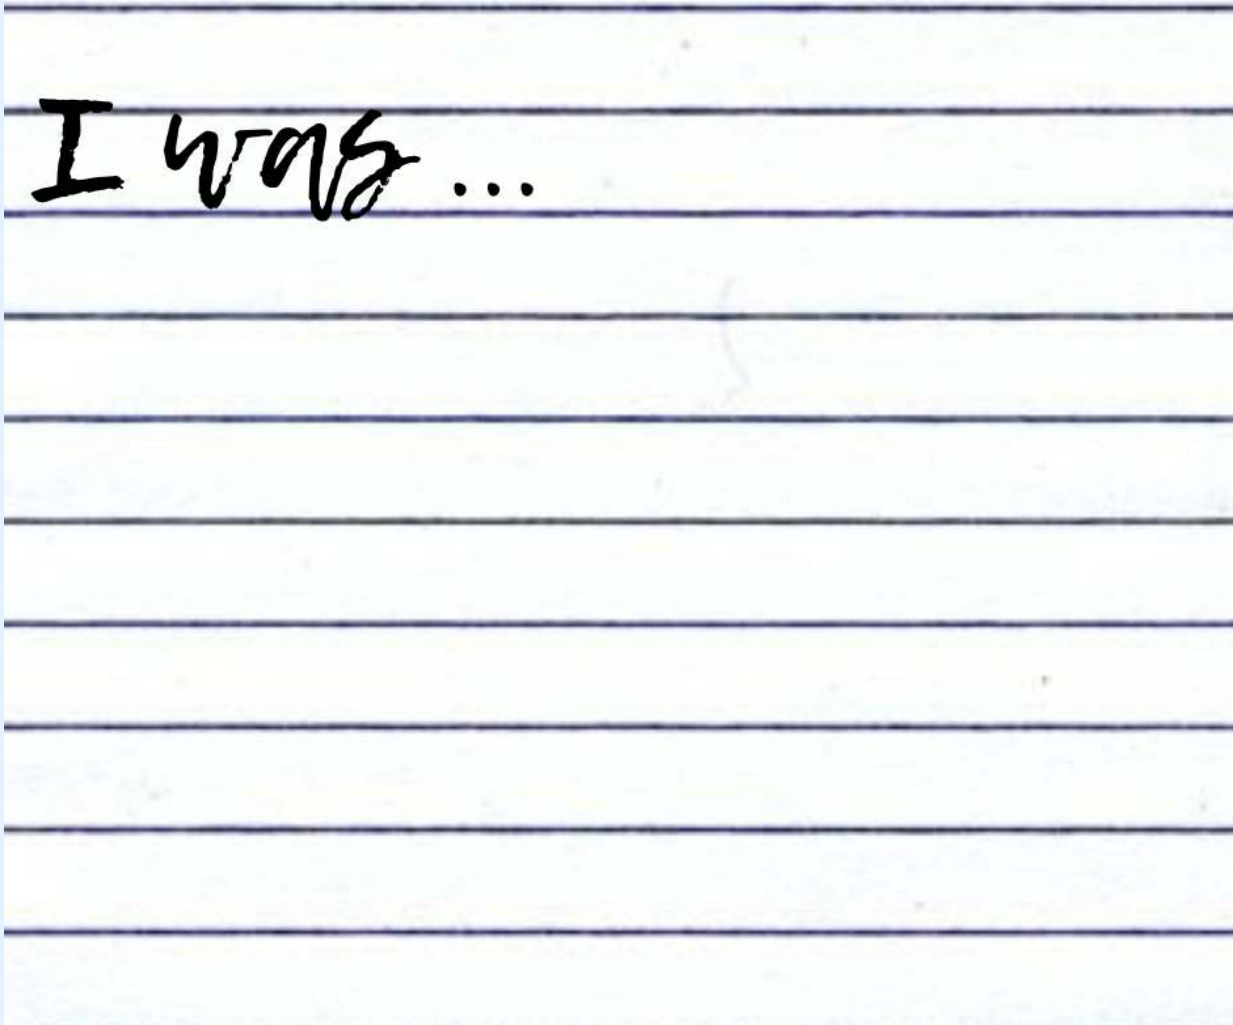 I was ...